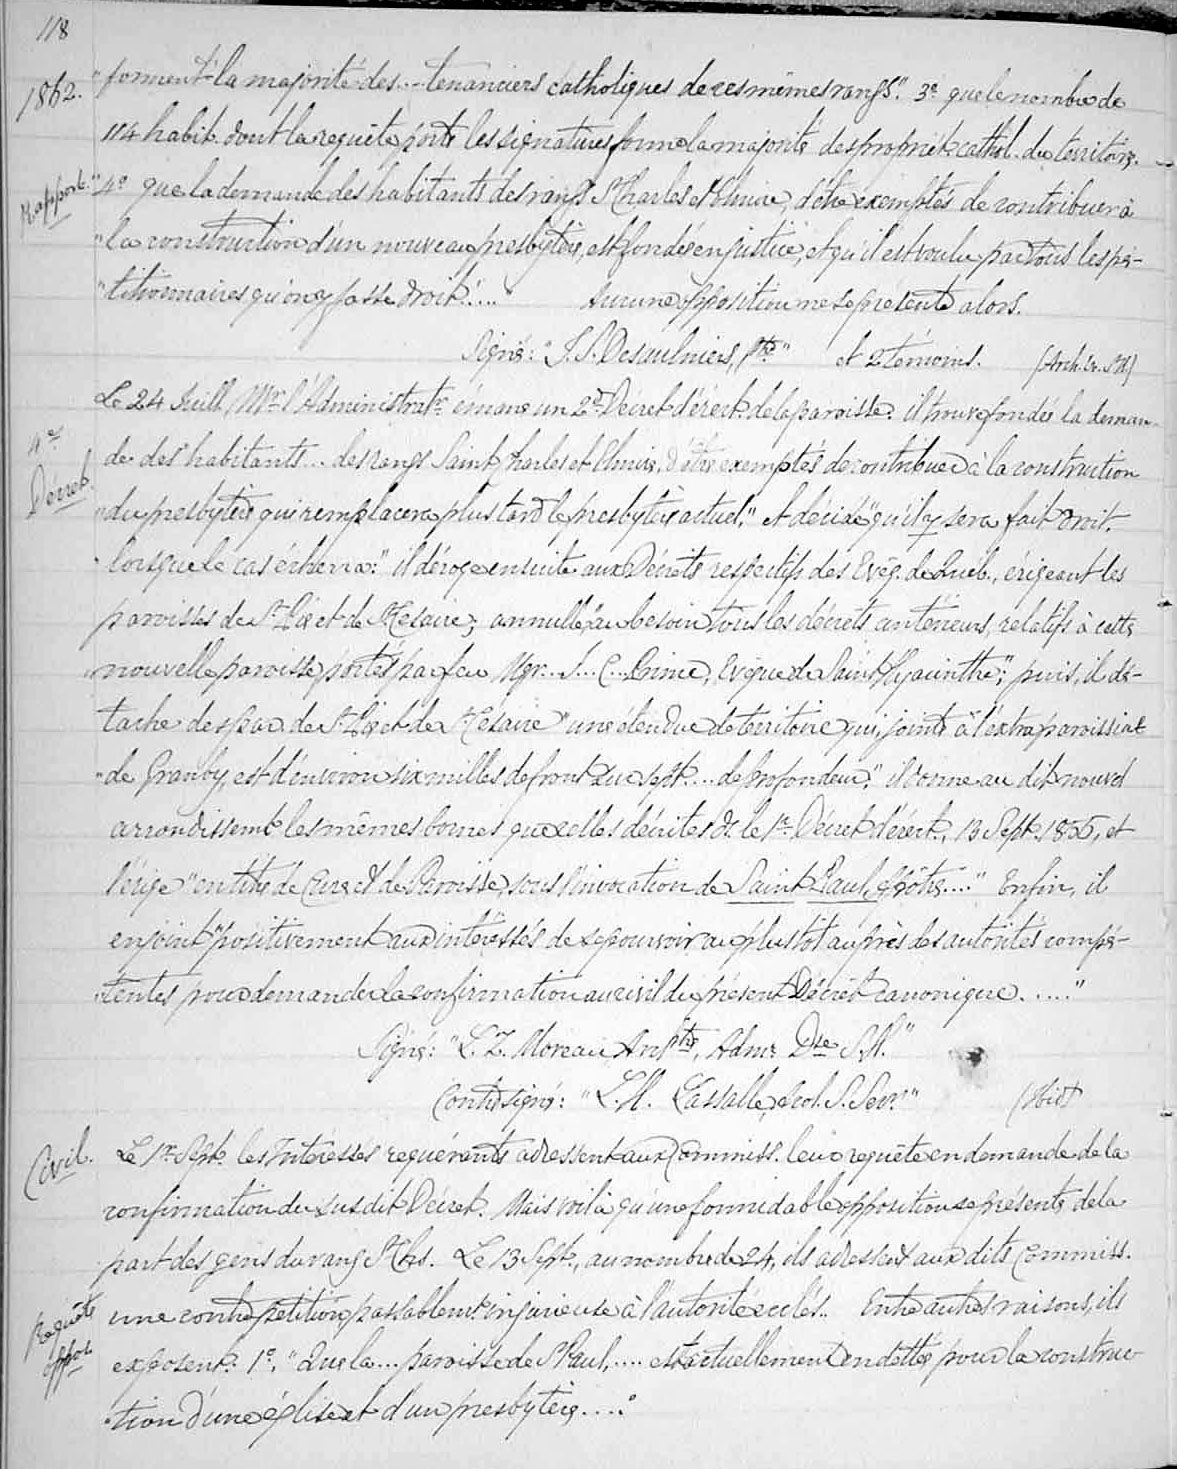 118
1862.
"forment la majorité des... tenanciers catholiques de ces mêmes rangs". 3º que le nombre de
114 habit. dont la requête porte les signatures forme la majorité des propriét. cathol. du territoire.
Rapport.
"4º que la demande des habitants des rangs St Charles et Elmire, d'être exemptés de contribuer à
"la construction d'un nouveau presbytère, est fondée en justice, et qu'il est voulu par tous les pé-
"titionnaires qu'on y fasse droit....." Aucune opposition ne se présente alors.
Signé: "J. S. Desaulniers, Ptre" et 2 témoins. (Arch. Ev. S.H.)
Le 24 Juill. Mr l'Administratr émane un 2d Décret d'érect. de la paroisse. il trouve fondée la deman-
4e
Décret.
de des habitants... des rangs Saint Charles et Elmire, d'être exemptés de contribuer à la construction
"du presbytère qui remplacera plus tard le presbytère actuel," et décide "qu'il y sera fait droit.
lorsque le cas écherra:" il déroge ensuite aux Décrets respectifs des Evêq. de Québ., érigeant les
paroisses de St Pie et de St Césaire; annulle, "au besoin tous les décrets antérieurs, relatifs à cette
"nouvelle paroisse portés par feu Mgr... J... C... Prince, Evêque de Saint Hyacinthe"; puis, il dé-
tache des par. de St Pie et de St Césaire "une étendue de territoire qui, jointe à l'extraparoissial
"de Granby, est d'environ six milles de front sur sept.... de profondeur," il donne au dit nouvel
arrondissemt les mêmes bornes que celles décrites ds. le 1er Décret d'érect., 13 Sept. 1855, et
l'érige "en titre de Cure et de Paroisse, sous l'invocation de Saint Paul, Apôtre...." Enfin, il
enjoint "positivement aux intéressés de se pourvoir au plus tôt auprès des autorités compé-
"tentes pour demander la confirmation au civil du présent Décret canonique....."
Signé: "L. Z. Moreau Ptre, Admr. Dse S.H."
Contresigné: "L. H. Lassalle, Secr." (Ibid)
Civil.
Le 1er Sept. les Intéressés requérants adressent aux Commiss. leur requête en demande de la
confirmation du susdit Décret. Mais voilà qu'une formidable opposition se présente de la
part des gens du rang St Chs. Le 13 Sept., au nombre de 24, ils adressent aux dits Commiss.
Requête
oppos.
une contre pétition passablemt injurieuse à l'autorité ecclés.. Entre autres raisons, ils
exposent: 1º, "Que la... paroisse de St Paul,.... est actuellement endettée pour la construc-
"tion d'une église et d'un presbytère....: